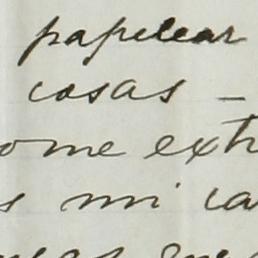 papelear
cosas –
ome ext
s mi ca